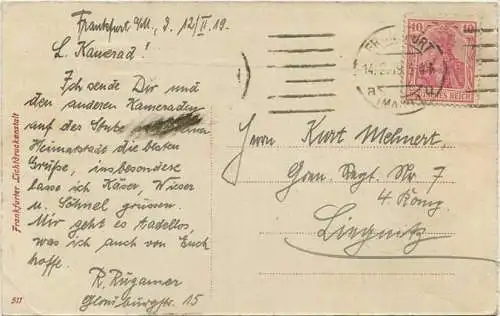 Frankfurt a/M, d. 12/II 19.
L. Kamerad!
Ich sende Dir und
den anderen Kameraden
auf der Stube
Heimatstadt die besten
Grüße, insbesondere
lasse ich Käser, Wieser
u. Schnel grüssen.
Mir geht es tadellos,
was ich auch von Euch
hoffe.
R. Rügamer
Glauburgstr. 15
Frankfurter Lichtdruckanstalt
511
FRANKFURT
(MAIN)
10 10
DEUTSCHES REICH
Herrn Kurt Mehnert,
Gren. Regt. Nr. 7
4. Komp.
Liegnitz